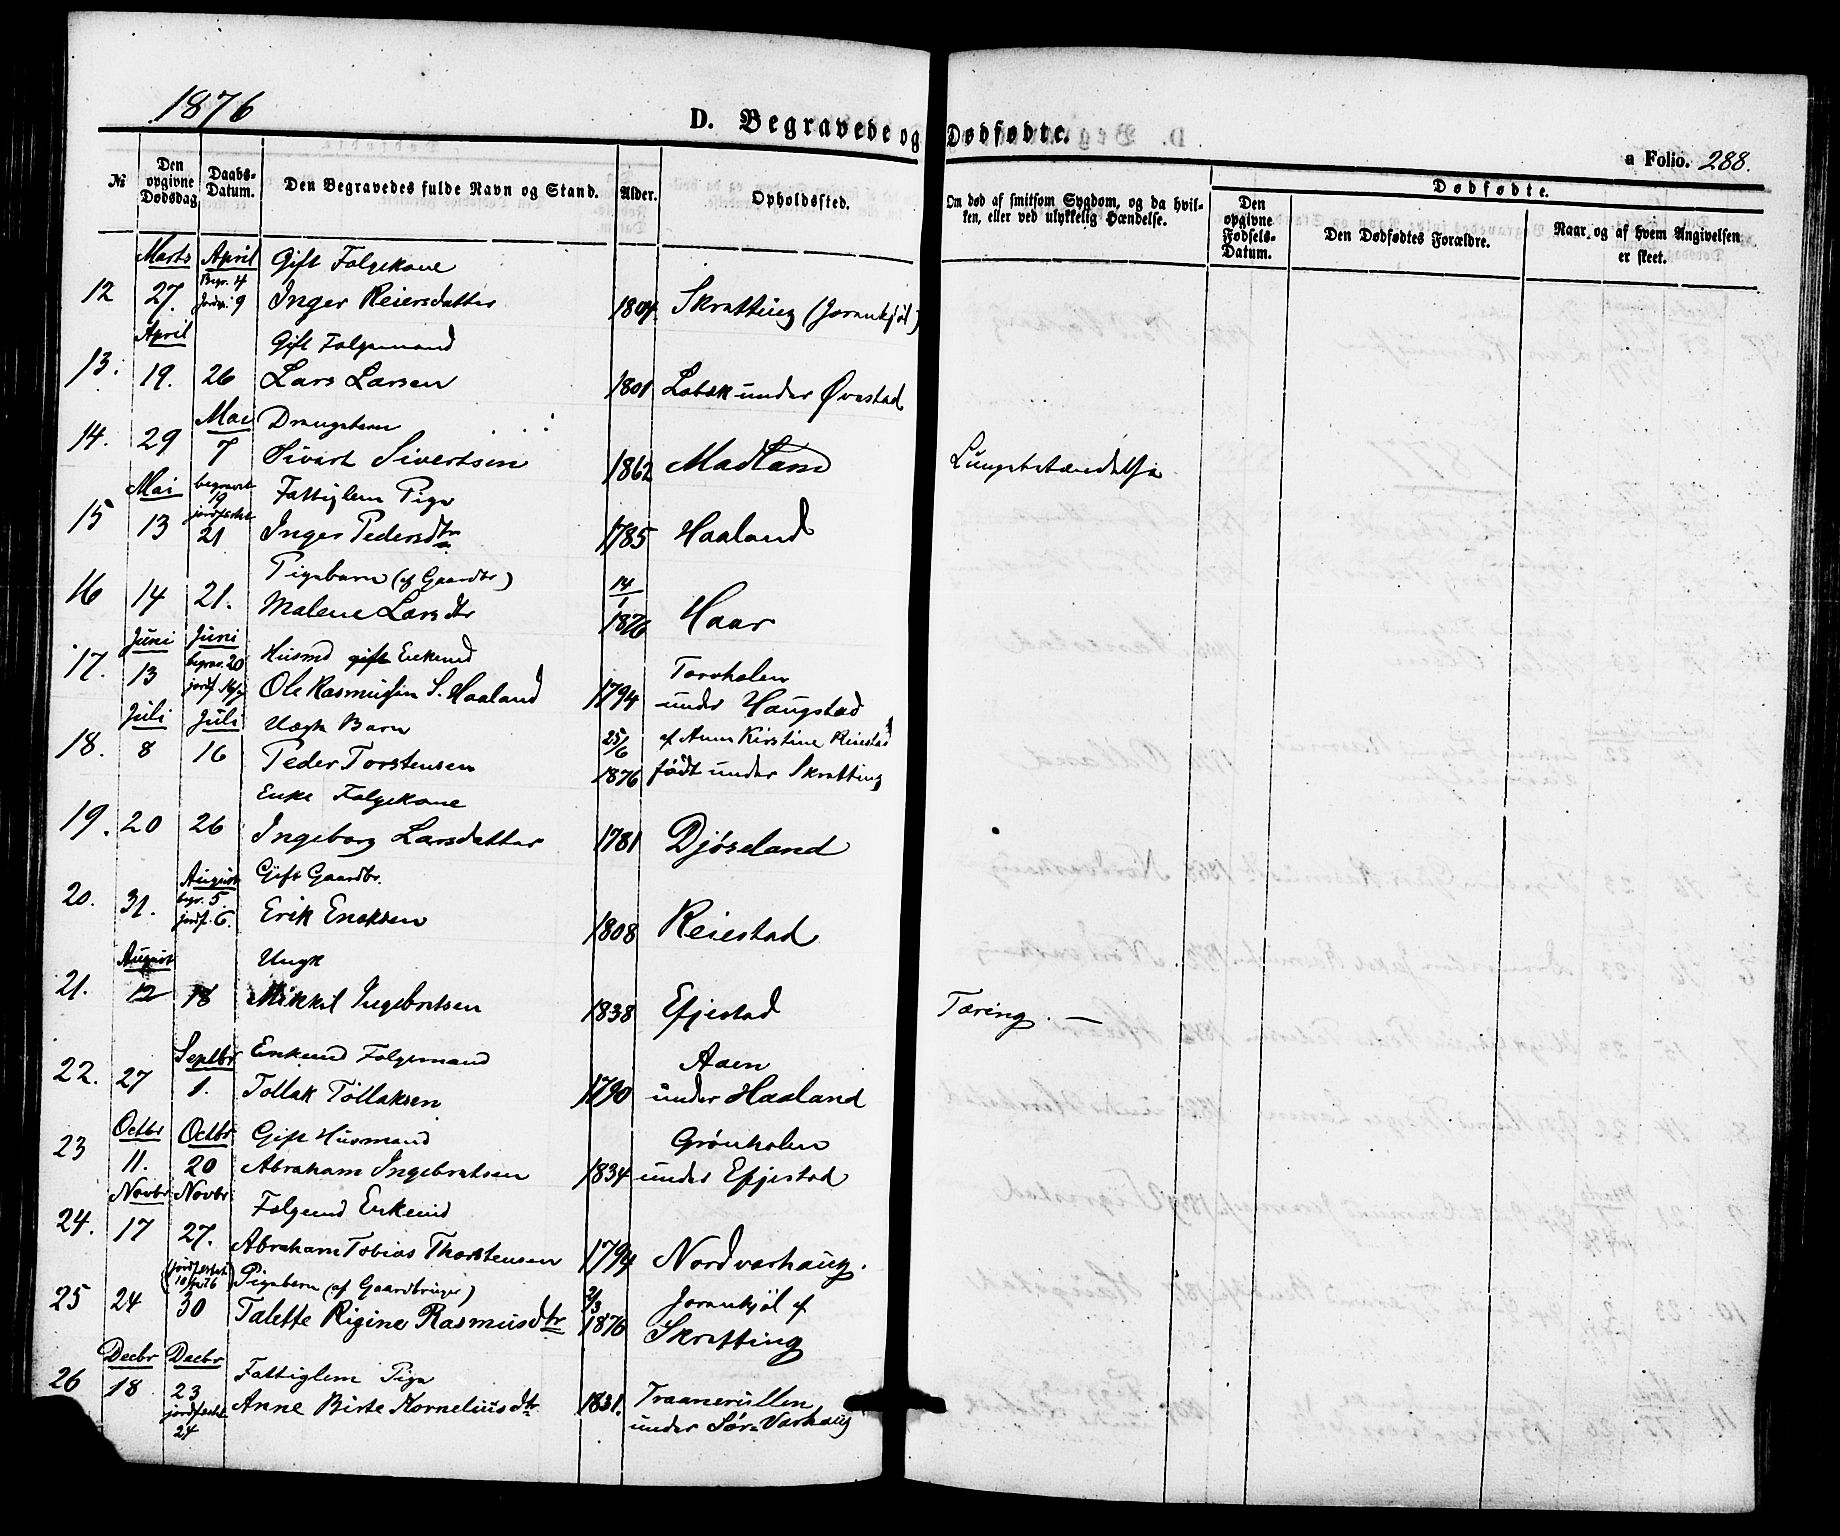 1876
D. Begravede og Dødfødte.
a Folio. 288.
No
Den opgivne Dødsdag
Daabs-Datum.
Den Begravedes fulde Navn og Stand.
Alder.
Opholdssted.
Om død af smitsom Sygdom, og da hvil-
ken, eller ved ulykkelig Hændelse.
Dødfødte.
Den opgivne Fødsels-Datum.
Den Dødfødtes Forældre.
Naar og af hvem Angivelsen
er skeet.
Marts April Gift Folgekone
12 27. Begr. 4 9 Inger Reiersdatter 1804. Skratting (Jorenkjøl)
April Gift Folgemand
13. 19. 26 Lars Larsen 1801 under Øvestad
Mai Drengebarn
14. 29 7 Sivert Sivertsen 1862 Madland Lungebetændelse
Mai begravet 19 Fattiglem Pige
15 13 jordfæstet 21 Inger Pedersdtr 1785 Haaland
Pigebarn (af Gaardbr)
16 14 21. Malene Larsdtr 14/1 1876 Haar
Juni Juni Husmd gift Enkemd Torvholen
17. 13 begrav. 20 jordf. Ole Rasmussen S. Haaland 1794 under Haugstad
Juli Juli Uægte Barn af Anne Kirstine Reiestad
18. 8 16 Peder Torstensen 25/6 1876 født under Skratting
Enke Folgekone
19. 20 26 Ingeborg Larsdatter 1781 Djøseland
August Gift Gaardbr.
20. 31. begr. 5. jordf. 6. Erik Eneksen 1808 Reiestad
August Ungk
21. 12 18 Mikkel Ingebretsen 1838 Efjestad Tæring. —
Septbr Enkemd Folgemand Aaen
22. 27 1. Tollak Tollaksen 1790 under Haaland
Octbr Octbr Gift Husmand Grønholen
23 11. 20 Abraham Ingebretsen 1834 under Efjestad
Novbr Novbr Folgemd Enkemd
24. 17 27. Abraham Tobias Thorstensen 1794 Nordvarhaug.
(jordfæstet) Pigebarn (af Gaardbruger) Jorenkjøl af
25 24 30 Talette Rigine Rasmusdtr 2/3 1876 Skratting
Decbr Decbr Fattiglem Pige
26 18 23 Anne Birte Korneliusdtr 1831. Traanerullen
jordfæstet 24 under Sør-Varhaug